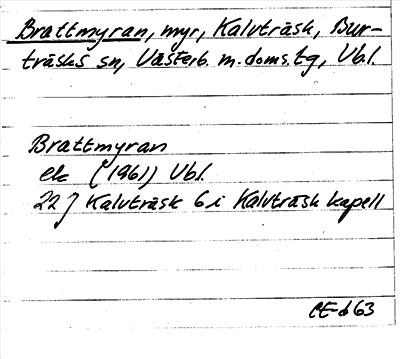 Brattmyran, myr, Kalvträsk, Bur-
träsks sn, Västerb. m. doms.tg, Vb.l.
Brattmyran
ek (1961) Vb.l.
22 J Kalvträsk 6 i Kalvträsk kapell
63